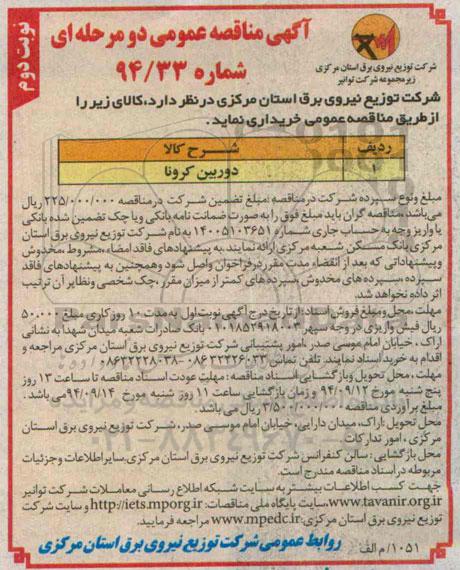 نوبت دوم
آگهی مناقصه عمومی دو مرحله ای
شماره ۹۴/۳۳
شرکت توزیع نیروی برق استان مرکزی
زیرمجموعه شرکت توانیر
شرکت توزیع نیروی برق استان مرکزی درنظر دارد، کالای زیر را
از طریق مناقصه عمومی خریداری نماید.
ردیف شرح کالا
۱ دوربین کرونا
مبلغ ونوع سپرده شرکت در مناقصه :مبلغ تضمین شرکت در مناقصه ۲۲۵/۰۰۰/۰۰۰ ریال
می‌باشد، مناقصه گران باید مبلغ فوق را به صورت ضمانت نامه بانکی ویا چک تضمین شده بانکی
یا واریز وجه به حساب جاری شماره ۱۴۰۰۵۱۰۳۶۵۱ به نام شرکت توزیع نیروی برق استان
مرکزی بانک مسکن شعبه مرکزی ارائه نمایند.به پیشنهادهای فاقد امضاء، مشروط، مخدوش
وپیشنهاداتی که بعد از انقضاء مدت مقرر درفراخوان واصل شود وهمچنین به پیشنهادهای فاقد
سپرده ،سپرده های مخدوش ،سپرده های کمتر از میزان مقرر، چک شخصی ونظایر آن ترتیب
اثر داده نخواهد شد.
مهلت، محل ومبلغ فروش اسناد: از تاریخ درج آگهی نوبت اول به مدت ۱۰ روز کاری مبلغ ۵۰.۰۰۰
ریال فیش واریزی در وجه سپهر ۰۱۰۱۸۵۲۹۱۸۰۰۳ بانک صادرات شعبه میدان شهدا به نشانی
اراک ، خیابان امام موسی صدر ،امور پشتیبانی شرکت توزیع نیروی برق استان مرکزی مراجعه و
اقدام به خرید اسناد نمایند. تلفن تماس ۰۸۶۳۲۲۲۶۰۳۳ -۰۸۶۳۲۲۲۸۰۳۸
مهلت ، محل تحویل وبازگشایی اسناد مناقصه : مهلت عودت اسناد مناقصه تا ساعت ۱۳ روز
پنج شنبه مورخ ۹۴/۰۹/۱۲ وزمان بازگشایی ساعت ۱۱ روز شنبه مورخ ۹۴/۰۹/۱۴ می باشد .
مبلغ برآوردی مناقصه ۳/۵۰۰/۰۰۰/۰۰۰ ریال می باشد.
محل تحویل :اراک، میدان دارایی، خیابان امام موسی صدر، شرکت توزیع نیروی برق استان
مرکزی ، امور تدارکات .
محل بازگشایی : سالن کنفرانس شرکت توزیع نیروی برق استان مرکزی.سایر اطلاعات وجزئیات
مربوطه در اسناد مناقصه مندرج است.
جهت کسب اطلاعات بیشتر به سایت شبکه اطلاع رسانی معاملات شرکت توانیر
www.tavanir.org.ir،سایت پایگاه ملی مناقصات: http://iets.mporg.ir و سایت شرکت
توزیع نیروی برق استان مرکزی: www.mpedc.ir مراجعه فرمایید.
۱۰۵۱/م الف
روابط عمومی شرکت توزیع نیروی برق استان مرکزی